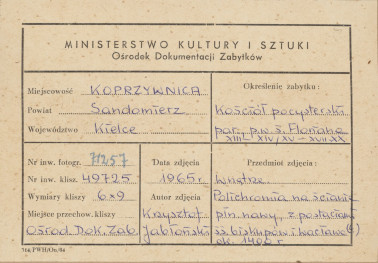 MINISTERSTWO KULTURY I SZTUKI
Ośrodek Dokumentacji Zabytków
Miejscowość KOPRZYWNICA
Powiat Sandomierz
Województwo Kielce
Określenie zabytku:
Kościół pocysterski
par. p.w. ś. Floriana
XIII–XIV/XV–XVII.XX
Nr inw. fotogr. 71257
Nr inw. klisz. 49725
Wymiary kliszy 6x9
Miejsce przechow. kliszy
Ośrod. Dok. Zab.
Data zdjęcia
1965r.
Autor zdjęcia
Krzysztof
Jabłoński
Przedmiot zdjęcia:
Wnętrze
Polichromia na ścianie
płn. nawy, z postaciami
ss. biskupów i Wacława(?)
ok. 1400 r.